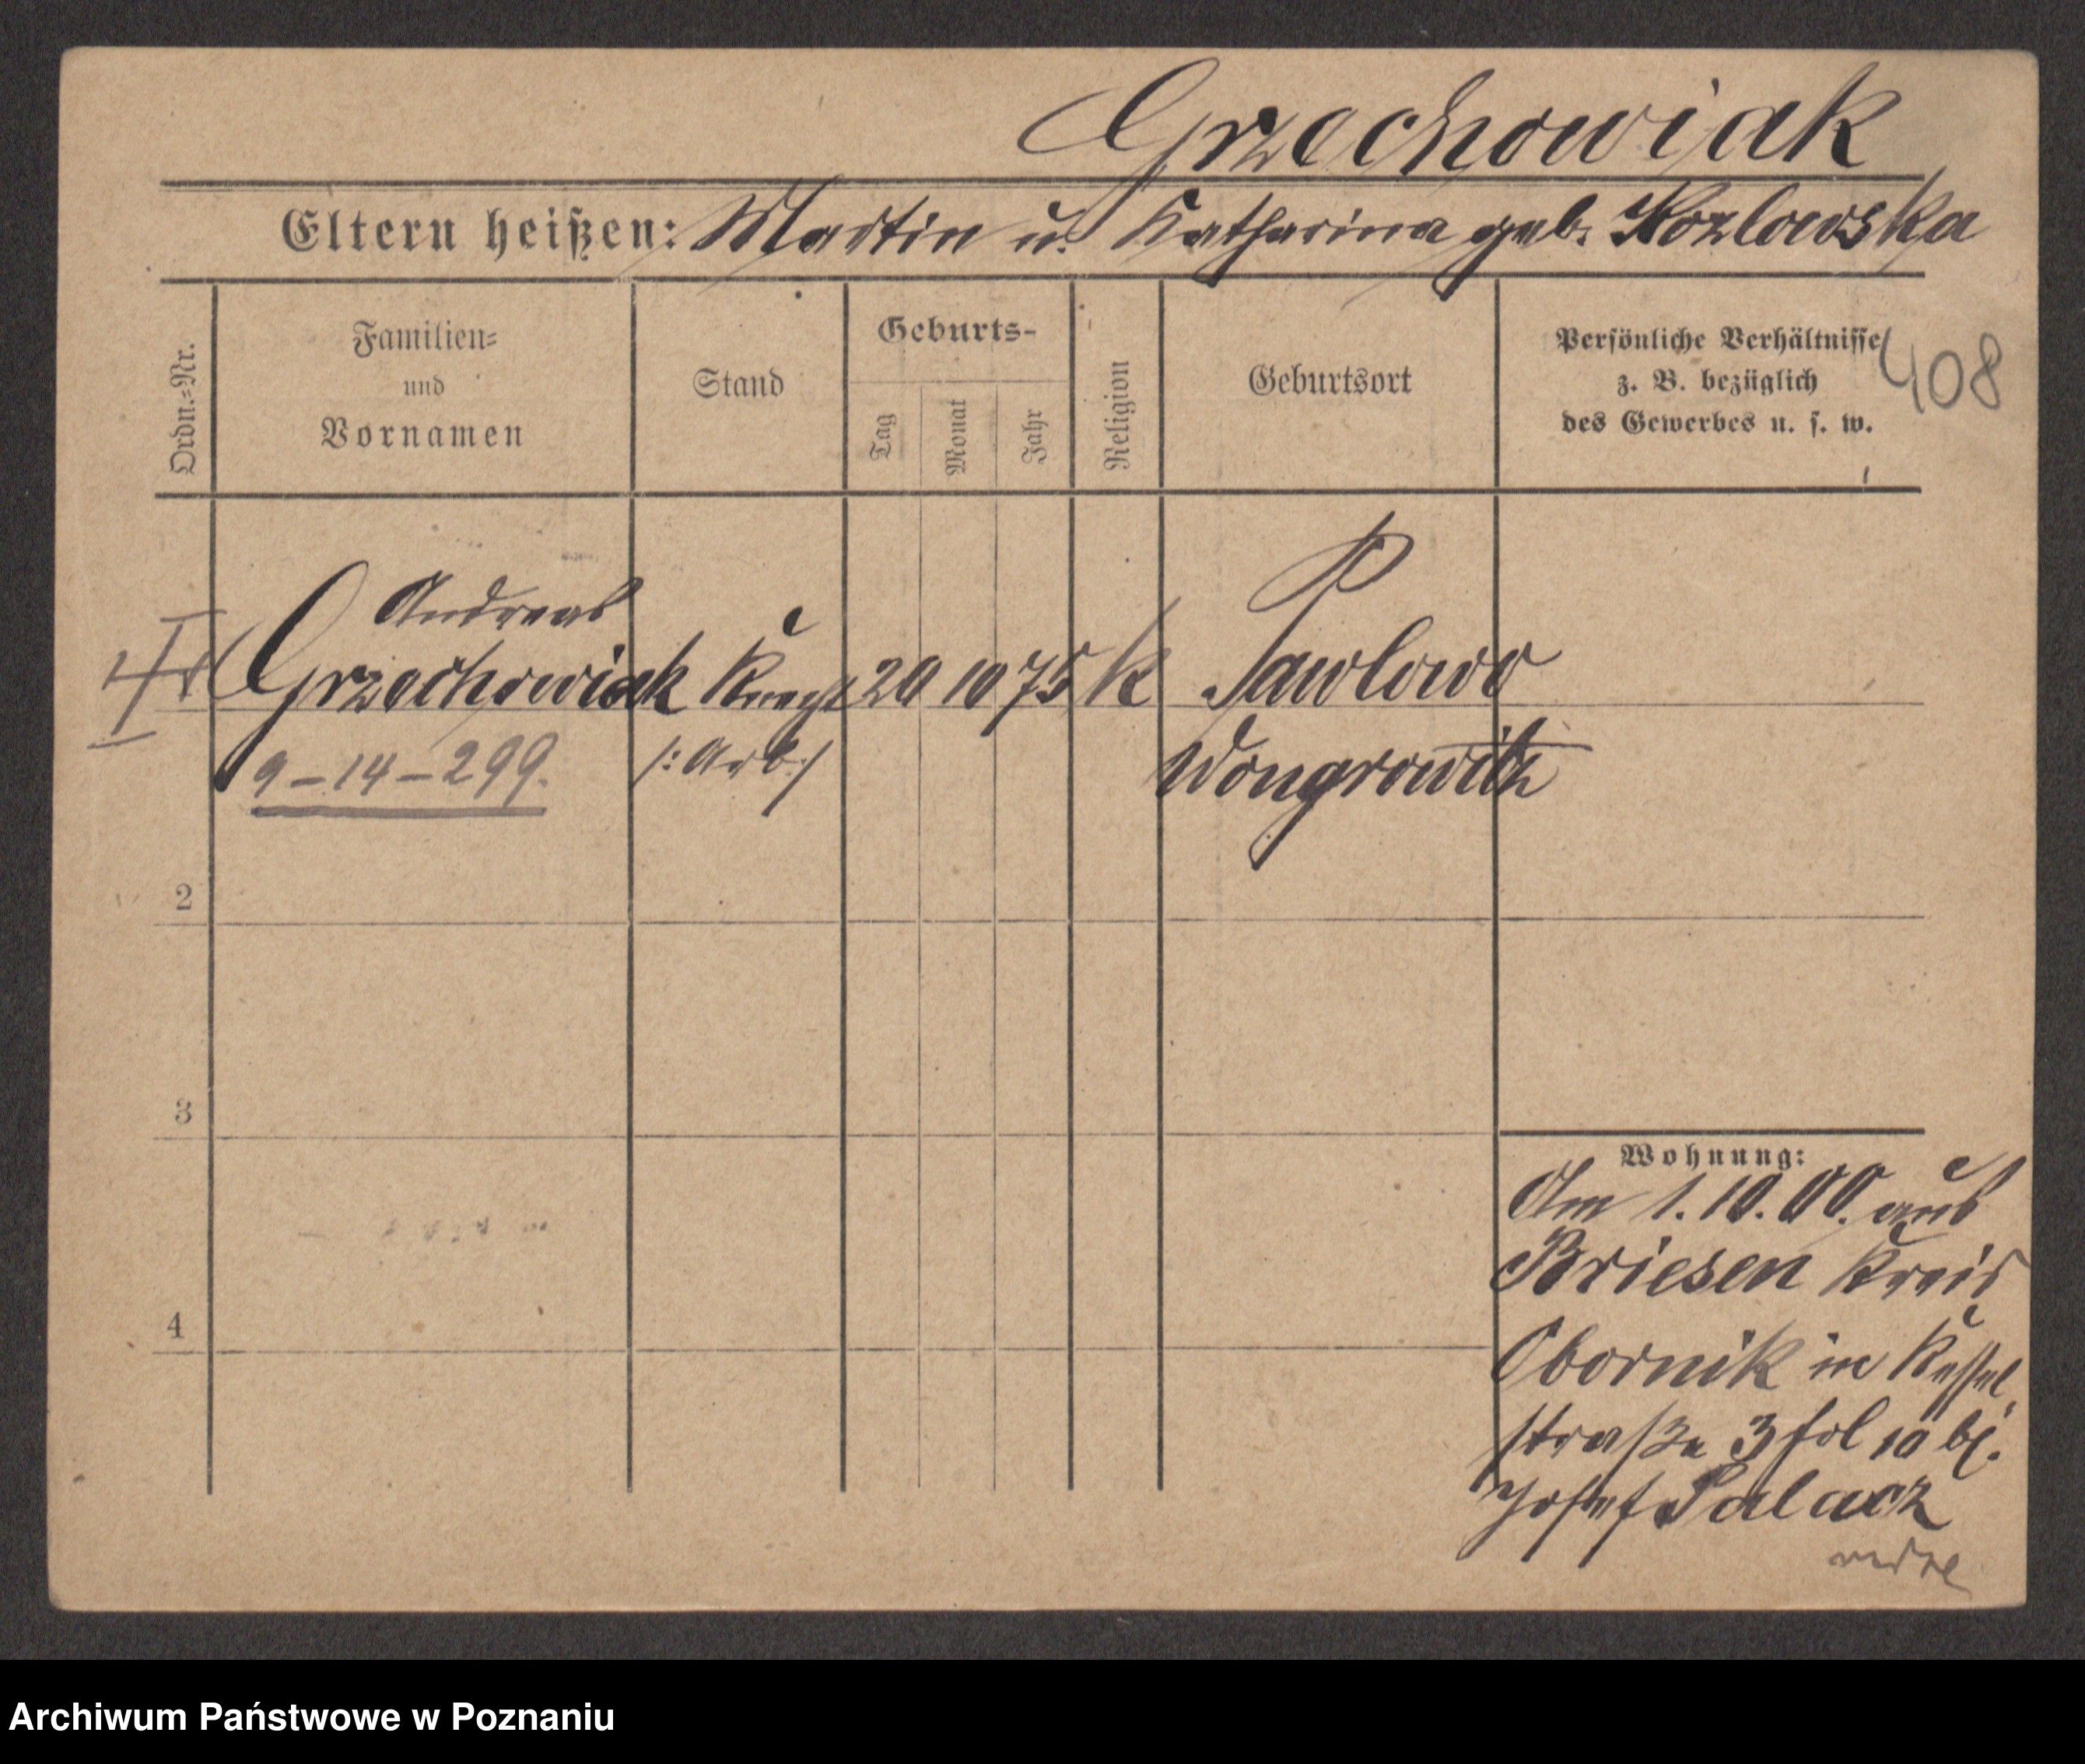 Grzechowiak
Eltern heißen: Martin u. Katharina geb. Kozlowska
Ordn.-Nr.
Familien-
und
Vornamen
Stand
Geburts-
Tag
Monat
Jahr
Religion
Geburtsort
Persönliche Verhältnisse
z. B. bezüglich
des Gewerbes u. s. w.
408
Andreas
Grzechowiak Knecht 20 10 75 K Pawlowo
9-14-299. /: Arb :/ Wongrowitz
2
3
4
Wohnung:
Am 1.10.00. aus
Briesen Kreis
Obornik in Kessel
straße 3 fol 10 bf.
Josef Palacz
Archiwum Państwowe w Poznaniu